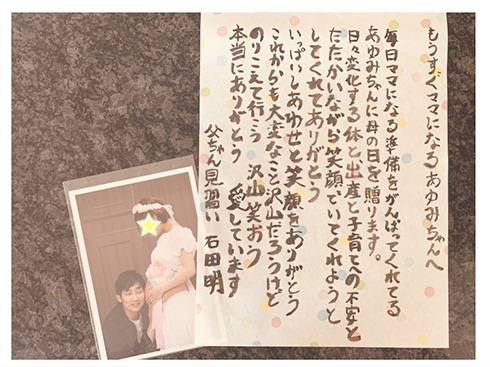 もうすぐママになるあゆみちゃんへ
毎日ママになる準備をがんばってくれてる
あゆみちゃんに母の日を贈ります。
日々変化する体と出産と子育てへの不安と
たたかいながら笑顔でいてくれようと
してくれてありがとう
いっぱいしあわせと笑顔をありがとう
これからも大変なこと沢山だろうけど
のりこえて行こう 沢山笑おう
本当にありがとう 愛しています
父ちゃん見習い 石田明